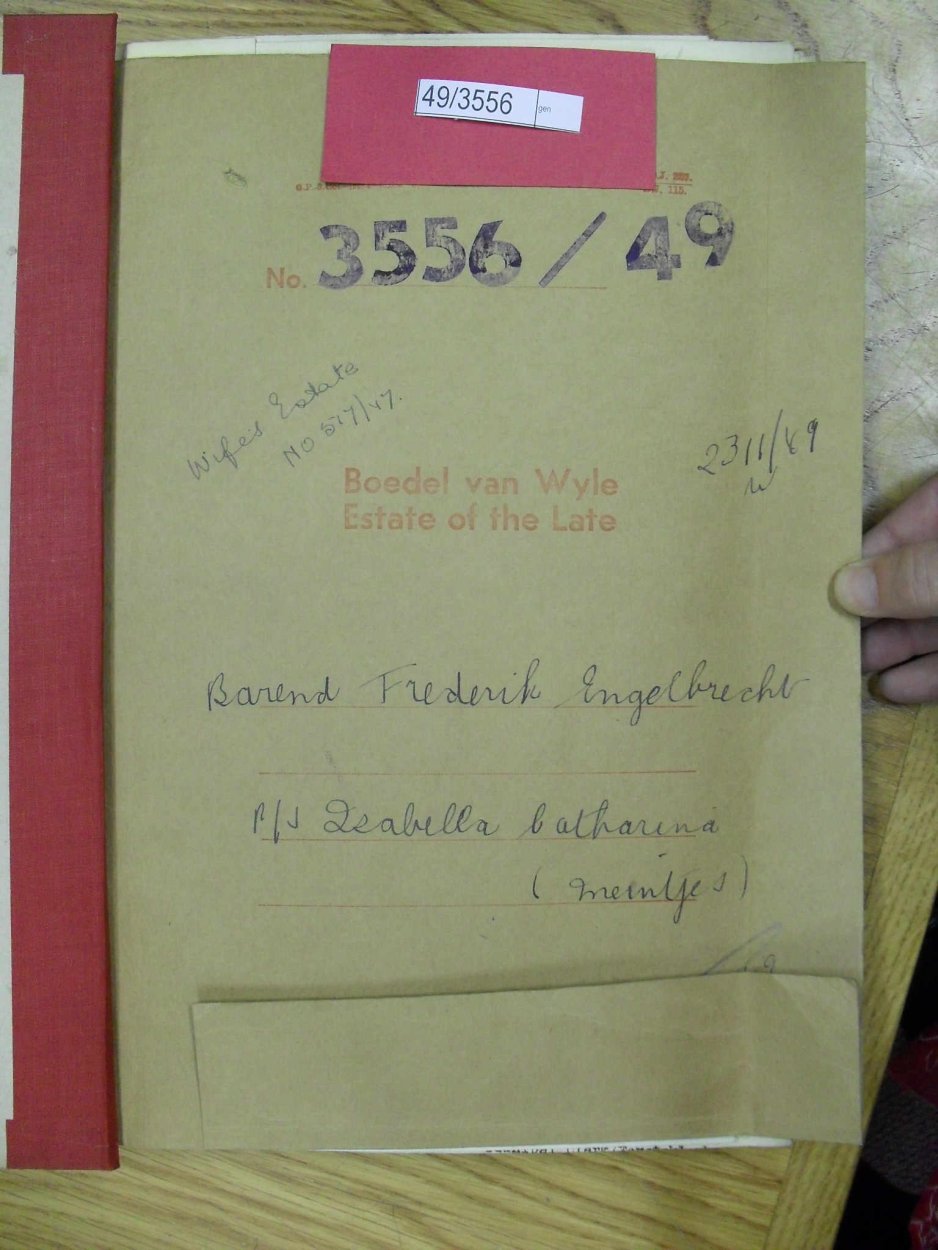 49/3556 gen
115.
No. 3556/49
Wife's Estate
No 577/47.
2311/49
Boedel van Wyle
Estate of the Late
Barend Frederik Engelbrecht
P/S Isabella Catharina
(Meintjes)